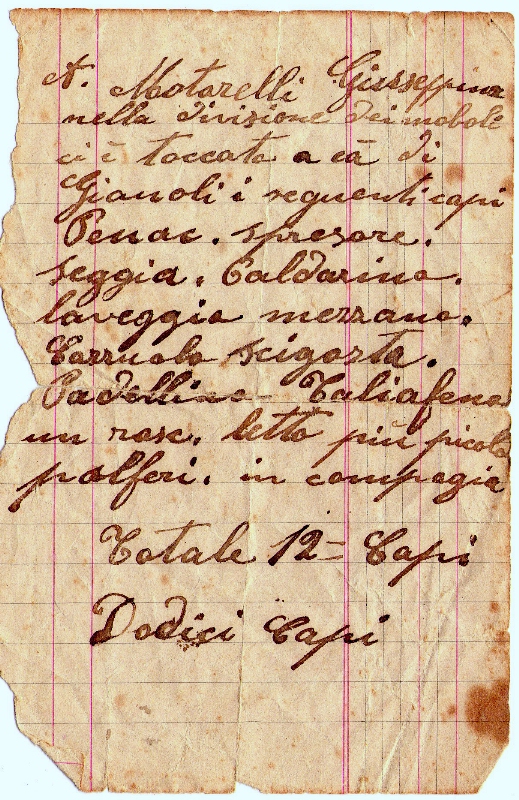 A. Motarelli Giuseppina
nella divisione dei moboli
ci è toccato a cà di
Gianoli i seguenti capi
Penac. spresore.
seggia. Caldarino.
laveggio mezzano.
Cazruolo scigosta.
Padellino Taliafeno
un rose. letto più picolo
palferi. in compagia
Totale 12 = Capi
Dodici Capi